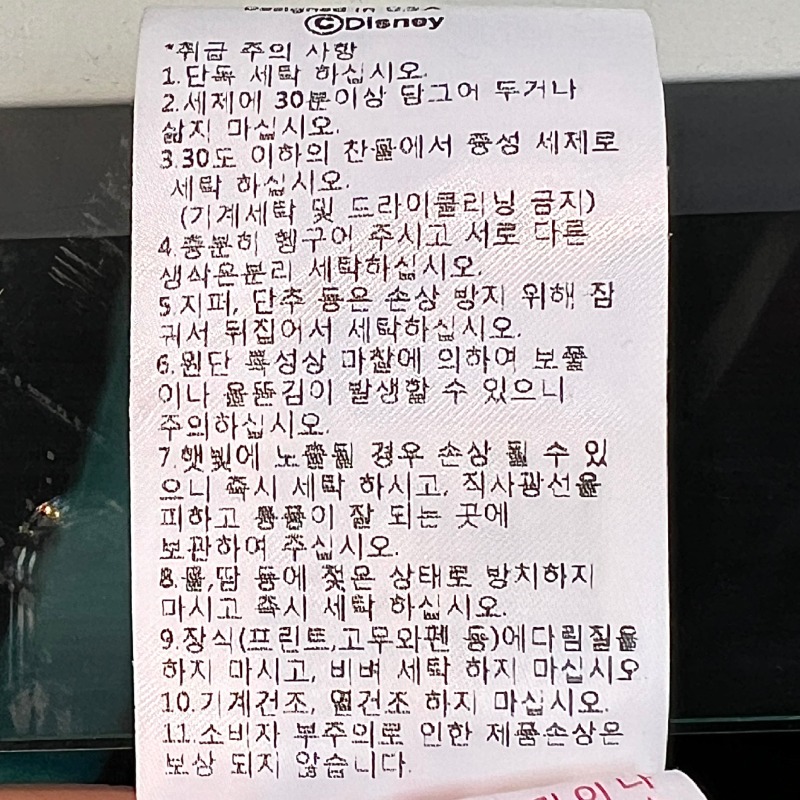 ©Disney
*취급 주의 사항
1.단독 세탁 하십시오.
2.세제에 30분이상 담그어 두거나
삶지 마십시오.
3.30도 이하의 찬물에서 중성 세제로
세탁 하십시오.
(기계세탁 및 드라이클리닝 금지)
4.충분히 헹구어 주시고 서로 다른
생삭은분리 세탁하십시오.
5.지퍼, 단추 등은 손상 방지 위해 잠
궈서 뒤집어서 세탁하십시오.
6.원단 특성상 마찰에 의하여 보풀
이나 올뜯김이 발생할 수 있으니
주의하십시오.
7.햇빛에 노출될 경우 손상 될 수 있
으니 즉시 세탁 하시고, 직사광선을
피하고 통풍이 잘 되는 곳에
보관하여 주십시오.
8.물,땀 등에 젖은 상태로 방치하지
마시고 즉시 세탁 하십시오.
9.장식(프린트,고무와펜 등)에다림질을
하지 마시고, 비벼 세탁 하지 마십시오
10.기계건조, 열건조 하지 마십시오.
11.소비자 부주의로 인한 제품손상은
보상 되지 않습니다.